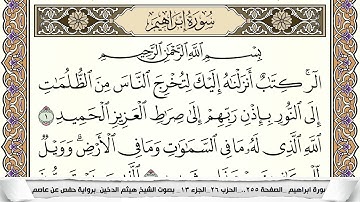 سُورَةُ إِبْرَاهِيمَ
بِسْمِ اللَّهِ الرَّحْمَٰنِ الرَّحِيمِ
الٓر ۚ كِتَٰبٌ أَنزَلْنَٰهُ إِلَيْكَ لِتُخْرِجَ ٱلنَّاسَ مِنَ ٱلظُّلُمَٰتِ
إِلَى ٱلنُّورِ بِإِذْنِ رَبِّهِمْ إِلَىٰ صِرَٰطِ ٱلْعَزِيزِ ٱلْحَمِيدِ ١
ٱللَّهِ ٱلَّذِى لَهُۥ مَا فِى ٱلسَّمَٰوَٰتِ وَمَا فِى ٱلْأَرْضِ ۗ وَوَيْلٌ
سورة ابراهيم _الصفحة ٢٥٥.. الحزب ٢٦ _الجزء ١٣ _ بصوت الشيخ هيثم الدخين _برواية حفص عن عاصم